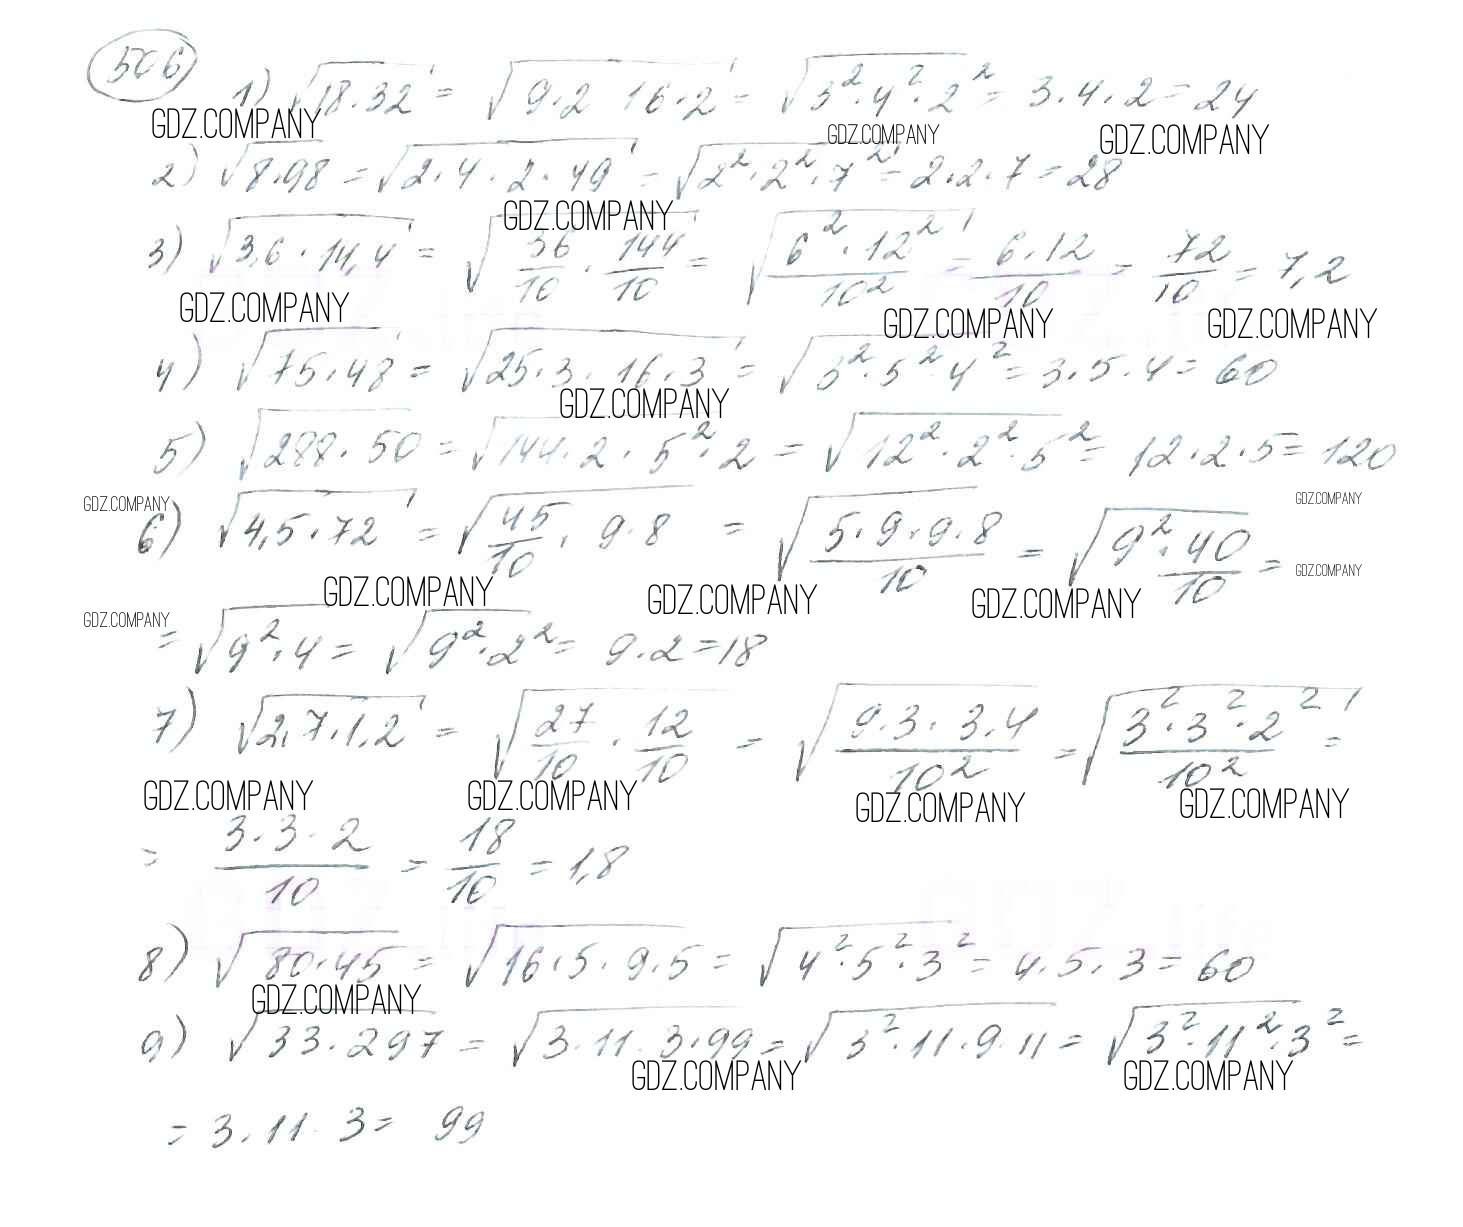 506
1) √(18·32) = √(9·2 16·2) = √(3²·4²·2²) = 3·4·2 = 24
GDZ.COMPANY GDZ.COMPANY GDZ.COMPANY
2) √(8·98) = √(2·4·2·49) = √(2²·2²·7²) = 2·2·7 = 28
GDZ.COMPANY
3) √(3,6·14,4) = √(36/10 · 144/10) = √(6²·12²/10²) = 6·12/10 = 72/10 = 7,2
GDZ.COMPANY GDZ.COMPANY GDZ.COMPANY
4) √(75·48) = √(25·3·16·3) = √(3²·5²·4²) = 3·5·4 = 60
GDZ.COMPANY
5) √(288·50) = √(144·2·5²·2) = √(12²·2²·5²) = 12·2·5 = 120
GDZ.COMPANY GDZ.COMPANY
6) √(4,5·72) = √(45/10 · 9·8) = √(5·9·9·8/10) = √(9²·40/10) =
GDZ.COMPANY GDZ.COMPANY GDZ.COMPANY GDZ.COMPANY
GDZ.COMPANY
= √(9²·4) = √(9²·2²) = 9·2 = 18
7) √(2,7·1,2) = √(27/10 · 12/10) = √(9·3·3·4/10²) = √(3²·3²·2²/10²) =
GDZ.COMPANY GDZ.COMPANY GDZ.COMPANY GDZ.COMPANY
= 3·3·2/10 = 18/10 = 1,8
8) √(80·45) = √(16·5·9·5) = √(4²·5²·3²) = 4·5·3 = 60
GDZ.COMPANY
9) √(33·297) = √(3·11·3·99) = √(3²·11·9·11) = √(3²·11²·3²) =
GDZ.COMPANY GDZ.COMPANY
= 3·11·3 = 99